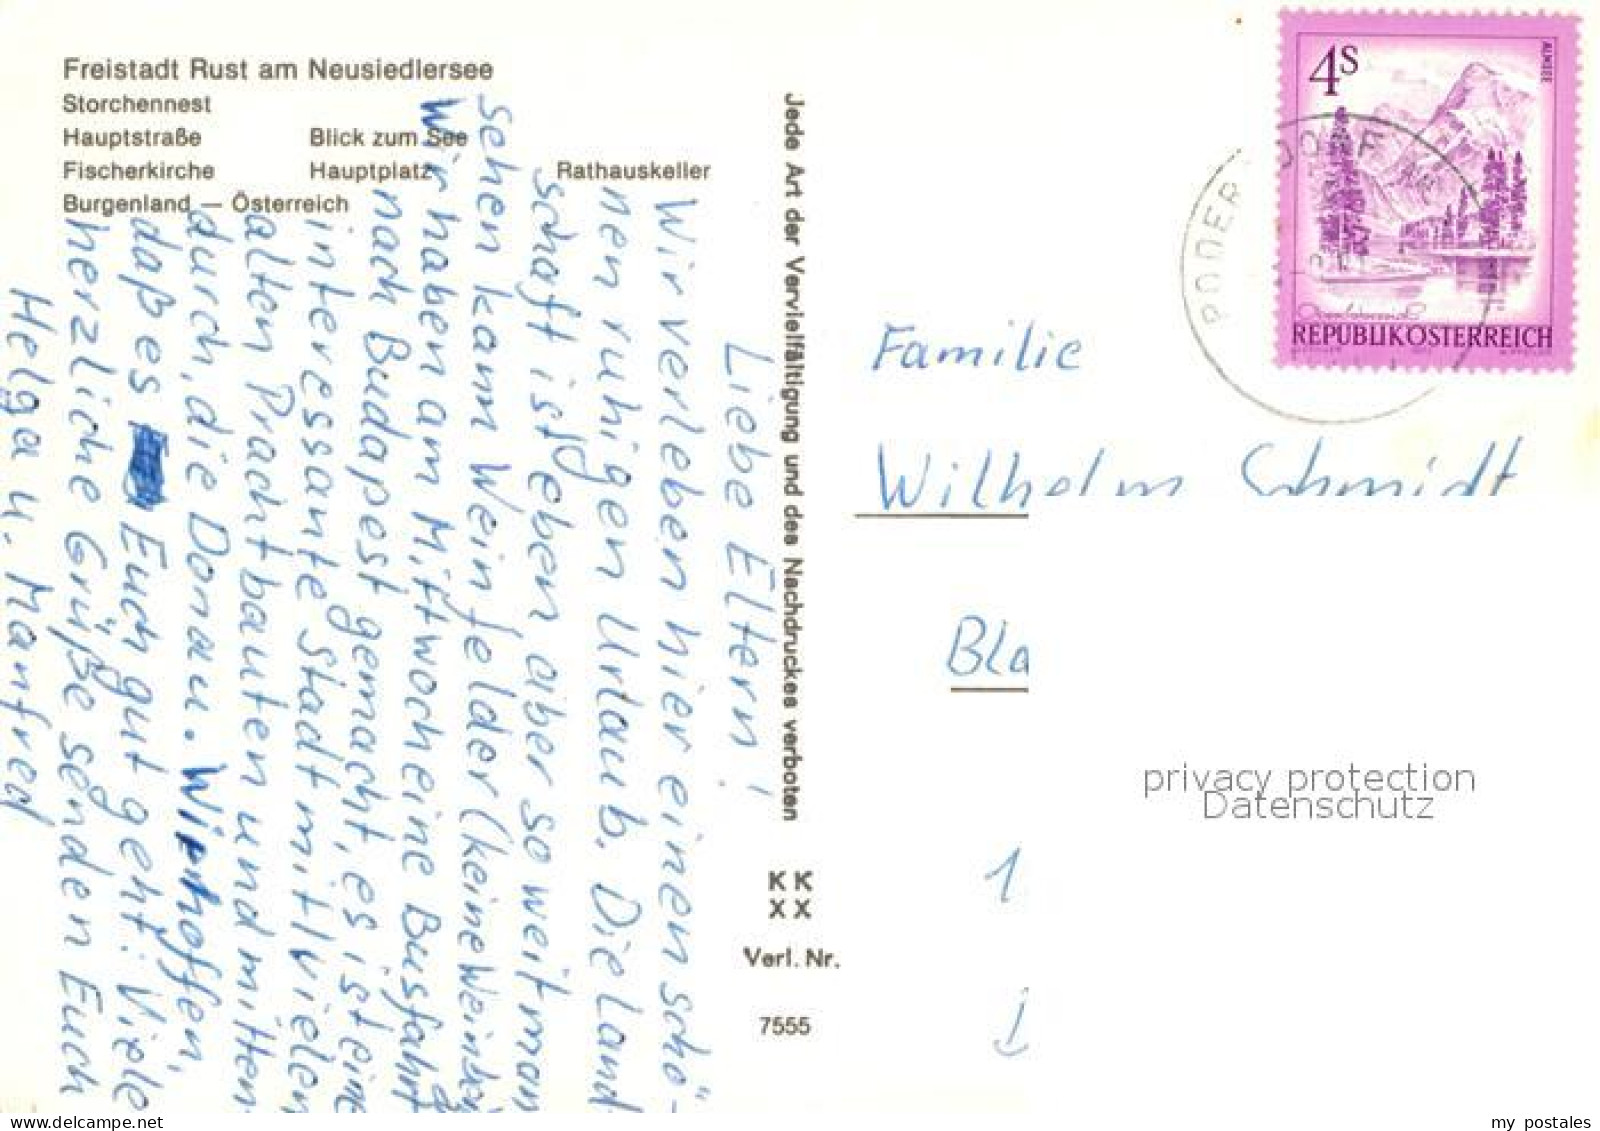 Freistadt Rust am Neusiedlersee
Storchennest
Hauptstraße Blick zum See
Fischerkirche Hauptplatz Rathauskeller
Burgenland — Österreich
Liebe Eltern!
Wir verleben hier einen schö-
nen ruhigen Urlaub. Die Land
schaft ist eben, aber so weit man
sehen kann Weinfelder (keine Weinber
Wir haben am Mittwoch eine Busfahrt
nach Budapest gemacht, es ist eine
interessante Stadt mit vielen
alten Prachtbauten und mitten
durch, die Donau. Wir hoffen,
daß es Euch gut geht. Viele
herzliche Grüße senden Euch
Helga u. Manfred
Jede Art der Vervielfältigung und des Nachdruckes verboten
KK
XX
Verl. Nr.
7555
4S
ALMSEE
REPUBLIK ÖSTERREICH
PODERSDORF AM
Familie
Wilhelm Schmidt
Bla
1
privacy protection
Datenschutz
delcampe.net
my_postales